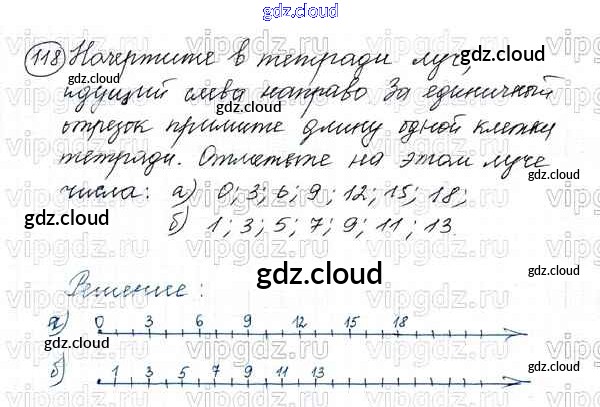 gdz.cloud
118 Начертите в тетради луч,
идущий слева направо За единичный
отрезок примите длину одной клетки
тетради. Отметьте на этом луче
числа: а) 0; 3; 6; 9; 12; 15; 18;
б) 1; 3; 5; 7; 9; 11; 13.
gdz.cloud
Решение:
а) 0 3 6 9 12 15 18
б) 1 3 5 7 9 11 13